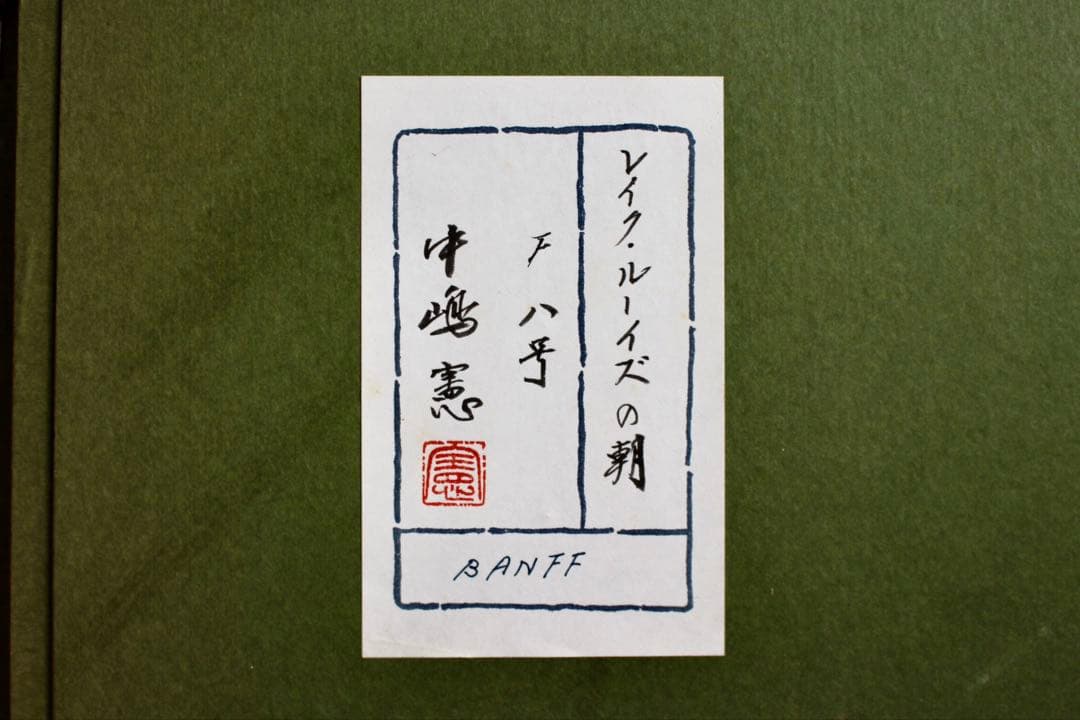 レイク・ルーイズの朝
F 八号
中嶋憲
憲
BANFF